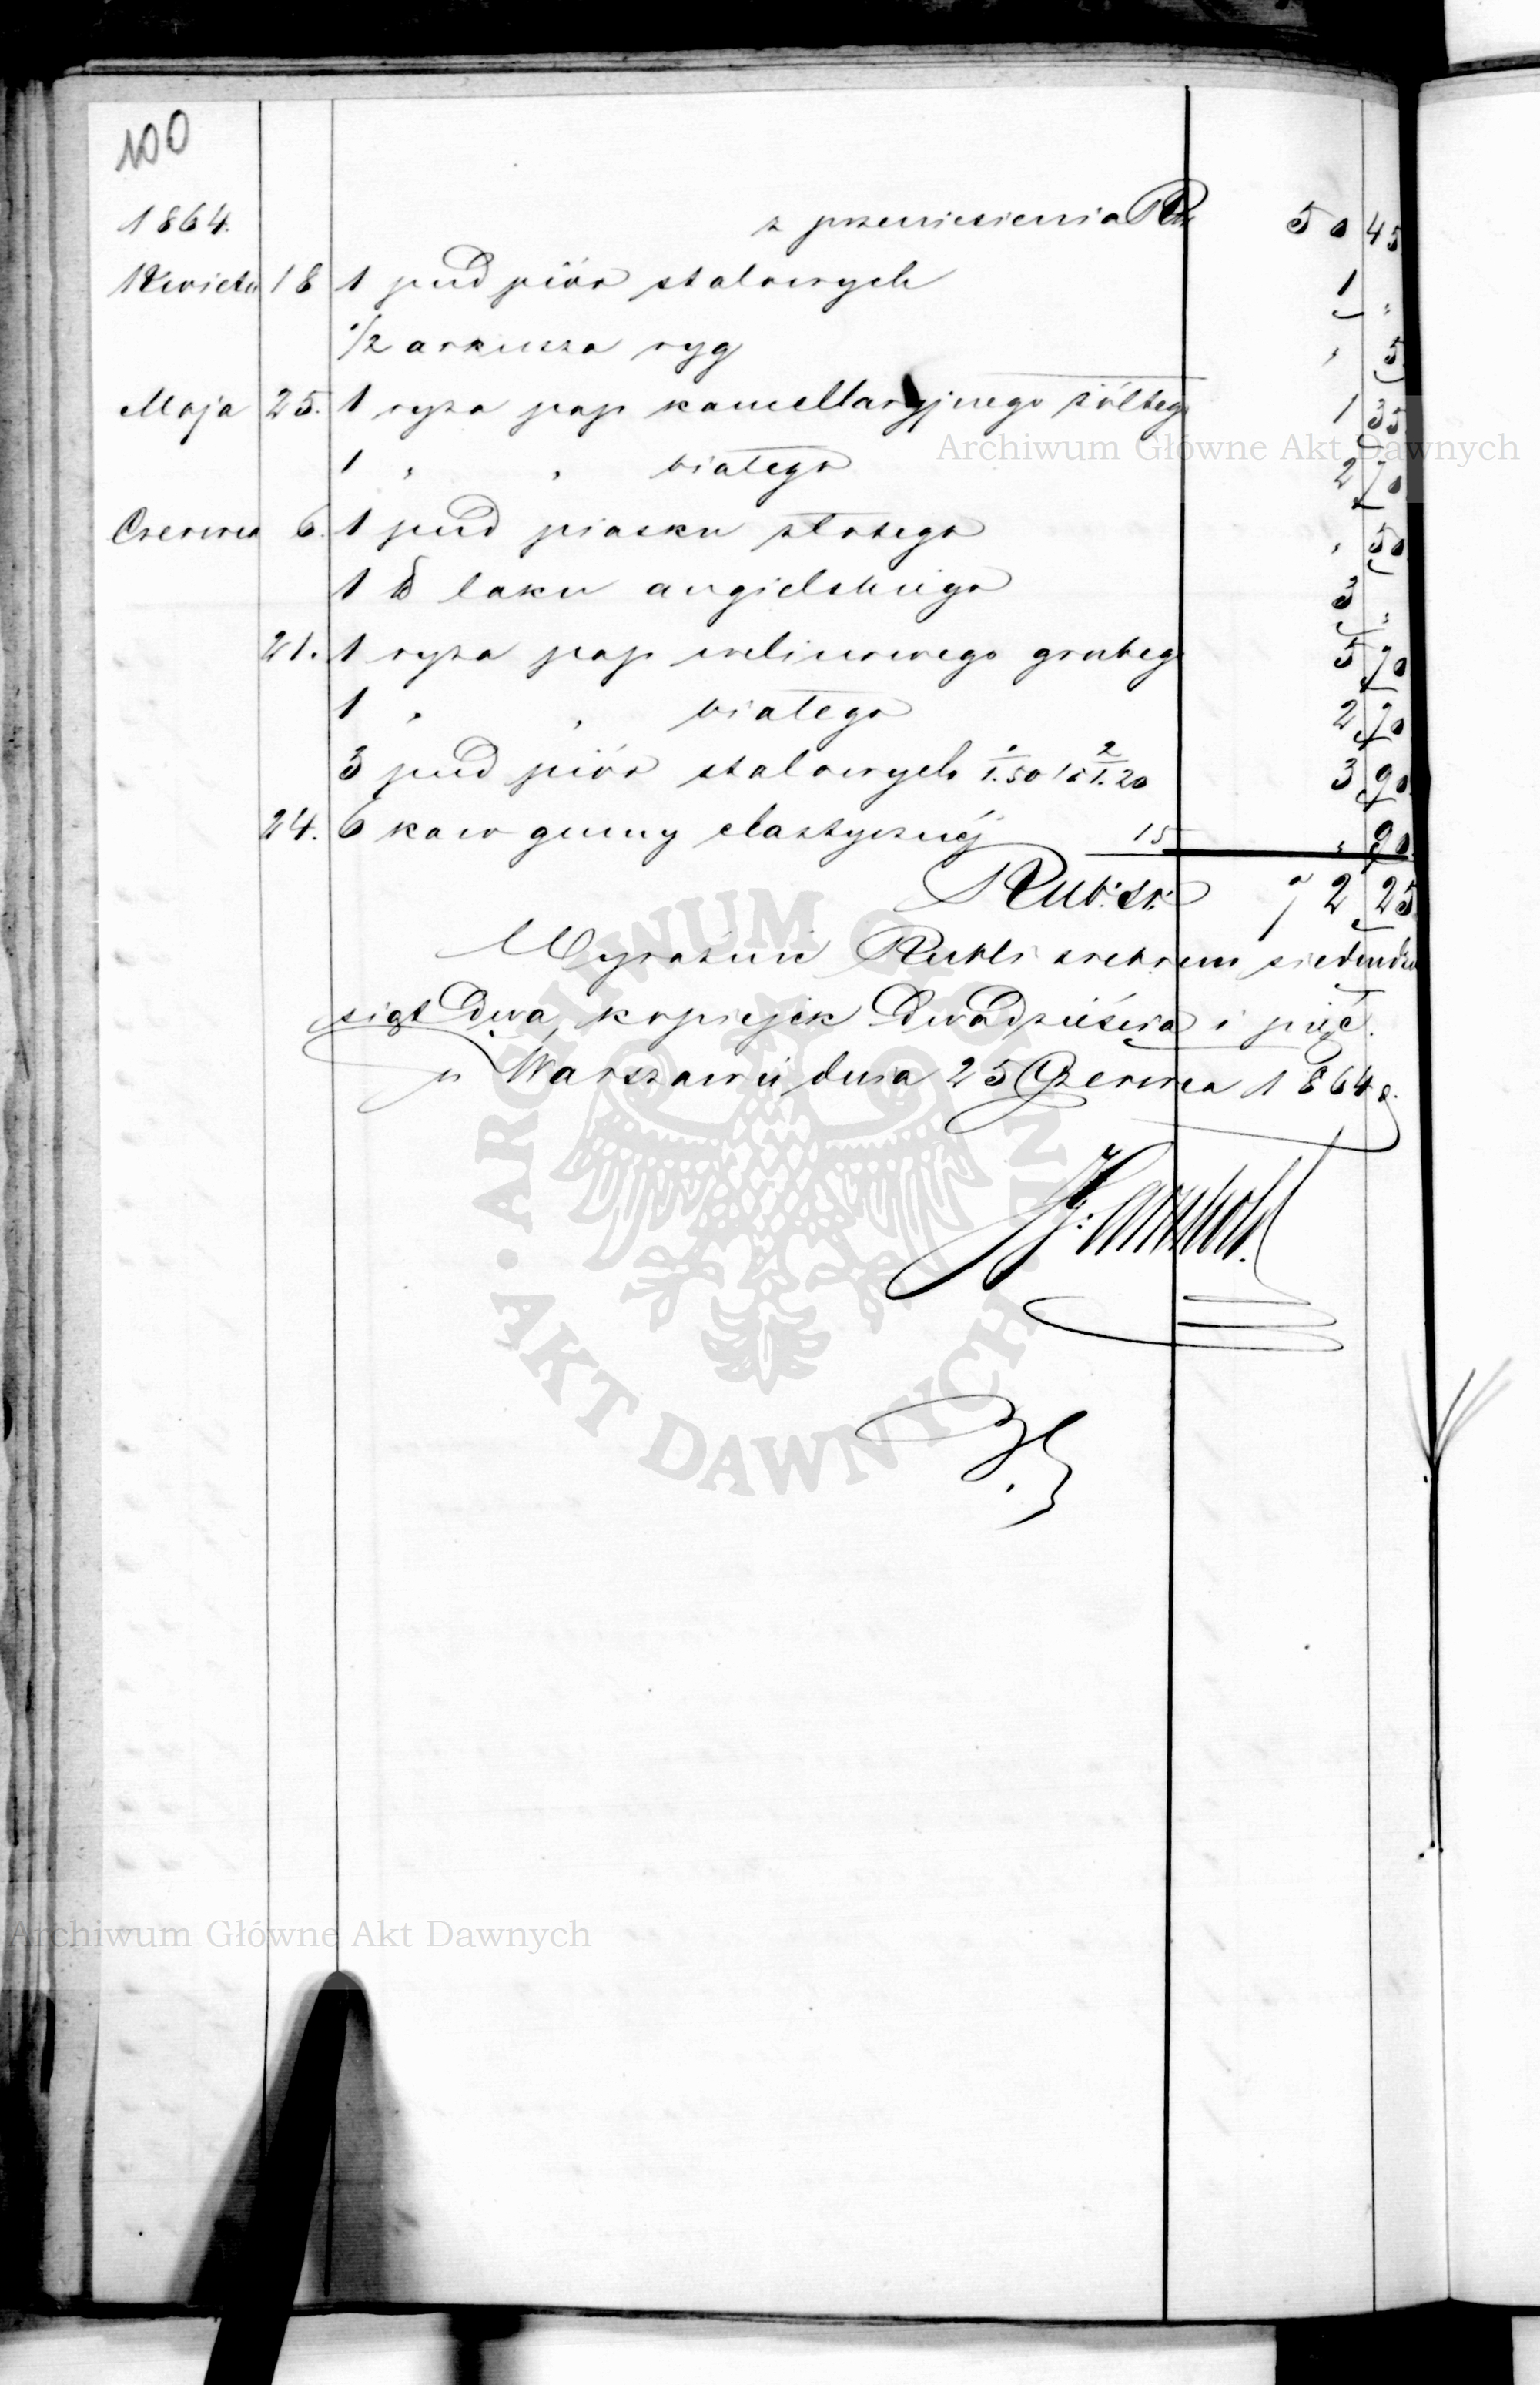 100
1864. z przeniesienia Rs 50 45
Kwietn 18 1 pud piór stalowych 1 "
1/2 arkusza ryg " 5
Maja 25. 1 ryza pap kancellaryjnego żółteg 1 35
1 " " białego 2 70
Czerwca 6. 1 pud piasku złotego " 50
1 ℔ laku angielskiego 3 "
21. 1 ryza pap welinowego grubeg 5 70
1 " " białego 2 70
3 pud piór stalowych 1/1.50 2/1.20 3 90
24. 6 kaw gumy elastycznéj 15 " 90
Rub: sr: 72 25
Wyraźnie Rubli srebrem siedmdzie
siąt dwa, kopiejek dwadzieścia i pięć.
w Warszawie dnia 25 Czerwca 1864 r.
Archiwum Główne Akt Dawnych
ARCHIWUM GŁÓWNE AKT DAWNYCH
Archiwum Główne Akt Dawnych